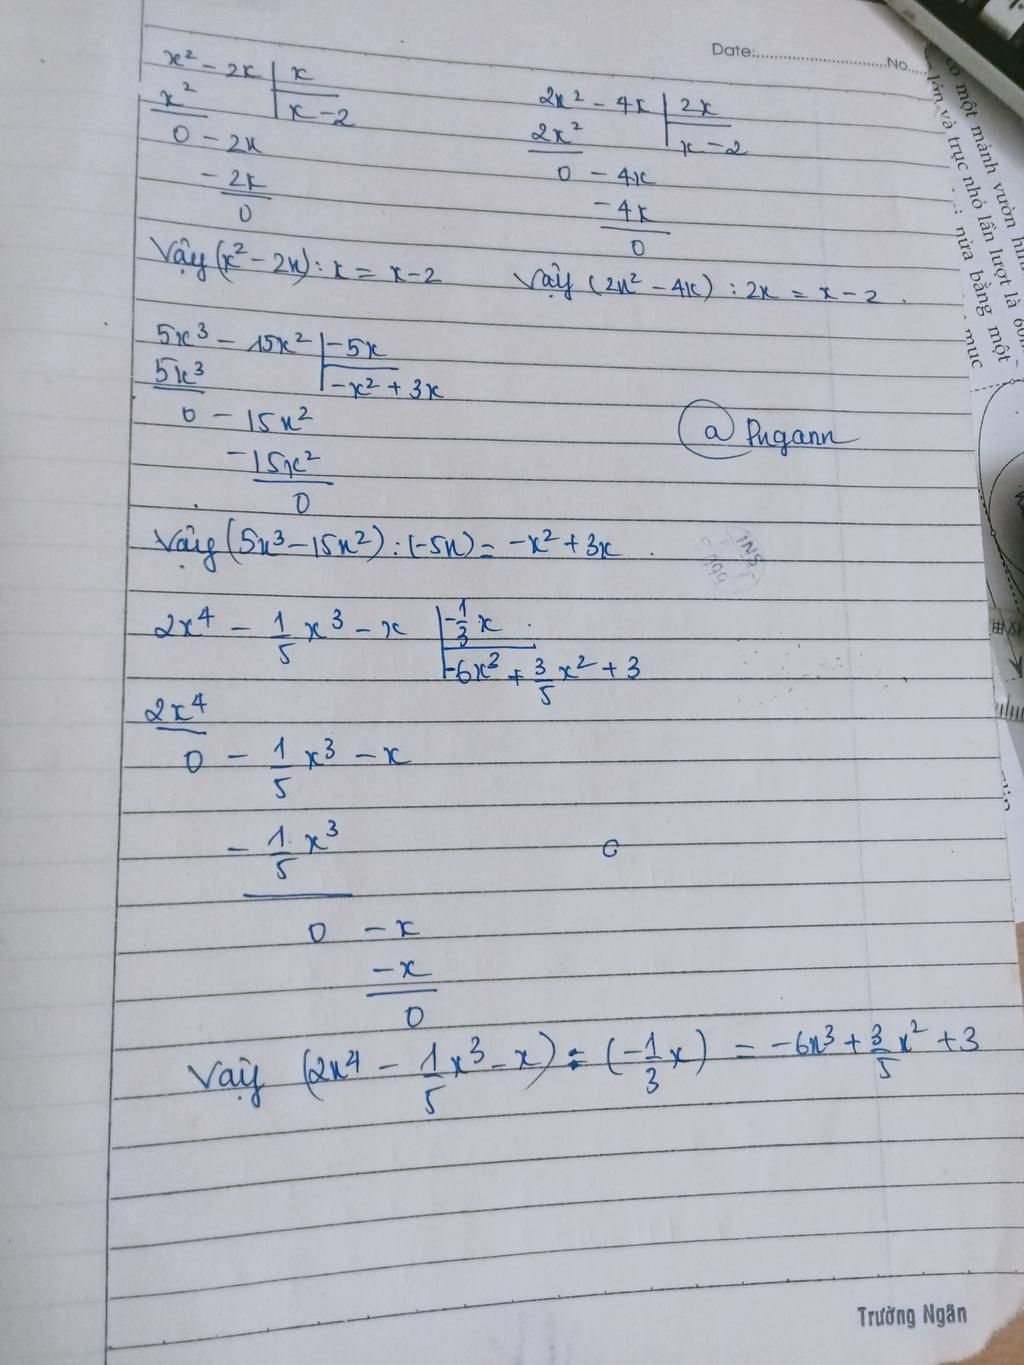 Date:..............................No.....
x² - 2x | x
x² | x - 2
0 - 2x
- 2x
0
Vậy (x² - 2x) : x = x - 2
2x² - 4x | 2x
2x² | x - 2
0 - 4x
- 4x
0
Vậy (2x² - 4x) : 2x = x - 2 .
5x³ - 15x² | -5x
5x³ | -x² + 3x
0 - 15x²
- 15x²
0
@ Pugann
Vậy (5x³ - 15x²) : (-5x) = -x² + 3x .
2x⁴ - 1/5 x³ - x | -1/3 x
-6x³ + 3/5 x² + 3
2x⁴
0 - 1/5 x³ - x
- 1/5 x³
0 - x
- x
0
Vậy (2x⁴ - 1/5 x³ - x) : (-1/3 x) = -6x³ + 3/5 x² + 3
Trường Ngân
một mảnh vườn hình
lớn và trục nhỏ lần lượt là 60
nửa bằng một
mục